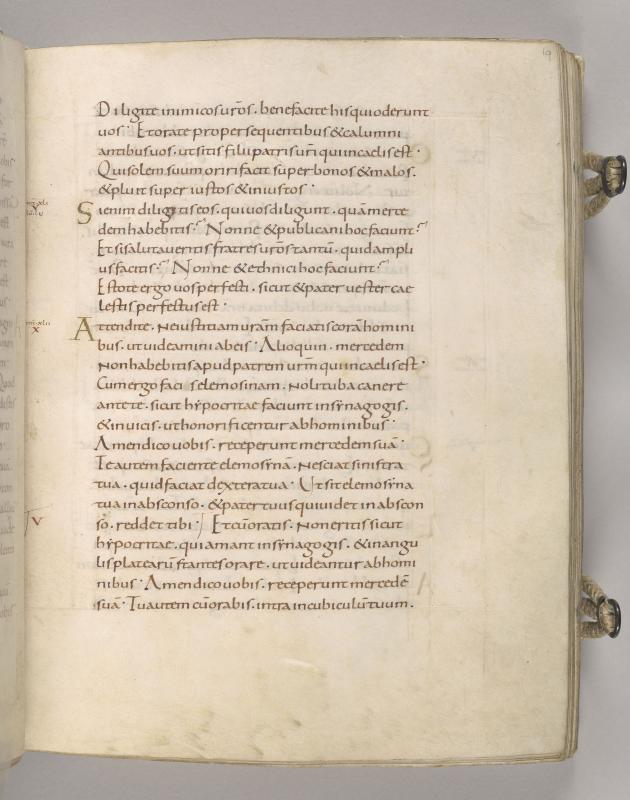 19
Diligite inimicosur̄os. benefacite hisquioderunt
uos. Etorate propersequentibus&calumni
antibusuos. utsitis filiipatrisur̄i quiincaelisest.
Quisolem suum oririfacit superbonos&malos.
&pluit super iustos &iniustos.
Sienim diligitiseos. quiuosdiligunt. quāmerce
demhabebitis? Nonne &publicanihocfaciunt?
Etsisalutaueritis fratresur̄ostantū. quidampli
usfacitis? Nonne &ethnicihocfaciunt?
Estoteergo uosperfecti. sicut &pater uestercae
lestisperfectusest.
Attendite. Neiustitiamurām faciatiscorāhomini
bus. utuideamini abeis. Alioquin. mercedem
Nonhabebitisapudpatrem urm̄ quiincaelisest.
Cumergo faci selemosinam. Nolitubacanere
antete. sicut hypocritae faciunt insynagogis.
&inuicis. uthonorificentur abhominibus.
Amendicouobis. receperunt mercedemsuā.
Teautem faciente elemosynā. Nesciat sinistra
tua. quidfaciat dexteratua. Utsitelemosyna
tuainabsconso. &patertuusquiuidet inabscon
so. reddet tibi. Etcūoratis. Noneritissicut
hypocritae. quiamant insynagogis. &inangu
lisplatearū stantesorare. utuideantur abhomi
nibus. Amendicouobis. receperunt mercedē
suā. Tuautem cūorabis. intra incubiculūtuum.
V